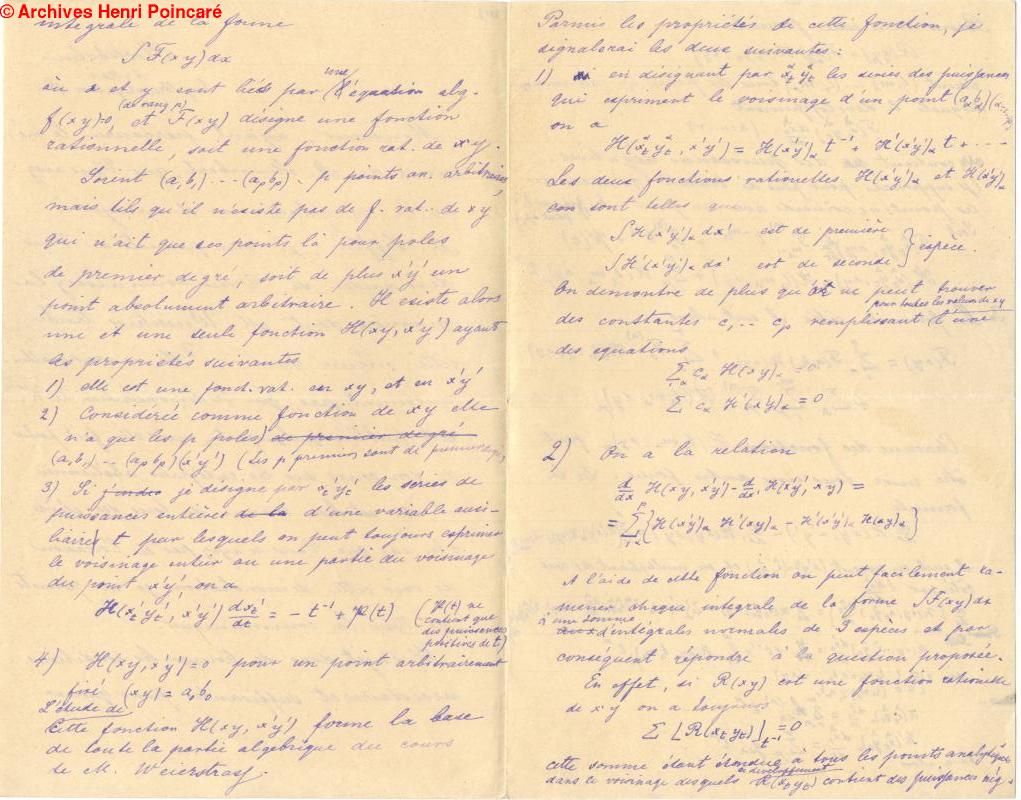 © Archives Henri Poincaré
intégrale de la forme
∫F(xy)dx
où x et y sont liés par une l'équation alg.
f(xy)=0, (de rang p) et F(xy) désigne une fonction
rationnelle, soit une fonction rat. de xy.
Soient (a₁b₁) ... (aₚbₚ) p points an. arbitraires,
mais tels qu'il n'existe pas de f. rat. de xy
qui n'ait que ces points là pour poles
de premier degré, soit de plus x'y' un
point absolument arbitraire. Il existe alors
une et une seule fonction H(xy, x'y') ayant
les propriétés suivantes
1) elle est une fonct. rat. en xy, et en x'y'
2) Considérée comme fonction de xy elle
n'a que les p poles) de premier degré
(a₁b₁) ... (aₚbₚ)(x'y') (Les p premiers sont de premier
3) Si je désigne par x'ₜy'ₜ les séries de
puissances entières de la d'une variable auxi-
liaire t par lesquels on peut toujours exprimer
le voisinage entier ou une partie du voisinage
du point x'y', on a
H(x'ₜy'ₜ, x'y') dx'ₜ/dt = - t⁻¹ + P(t) (P(t) ne
contient que
des puissances
positives de t)
4) H(xy, x'y')=0 pour un point arbitrairement
fixé (xy) = a₀b₀
L'étude de
Cette fonction H(xy, x'y') forme la base
de toute la partie algebrique du cours
de M. Weierstrass.
Parmis les propriétés de cette fonction, je
signalerai les deux suivantes:
1) en désignant par xₜyₜ les series des puissances
qui expriment le voisinage d'un point (aₐbₐ)
on a
H(xₜyₜ, x'y') = H(x'y')ₐ t⁻¹ + H'(x'y')ₐ t + ...
Les deux fonctions rationelles H(x'y')ₐ et H'(x'y')ₐ
sont telles que
∫H(x'y')ₐ dx' est de première
∫H'(x'y')ₐ dx' est de seconde } espèce.
On demontre de plus qu'on ne peut trouver
pour toutes les valeurs de xy
des constantes c₁ .. cₚ remplissant l'une
des equations
Σ cₐ H(xy)ₐ = 0
Σ cₐ H'(xy)ₐ = 0
2) On a la relation
d/dx H(xy, x'y') - d/dx' H(x'y', xy) =
= Σ{H(x'y')ₐ H'(xy)ₐ - H'(x'y')ₐ H(xy)ₐ}
A l'aide de cette fonction on peut facilement ra-
mener chaque integrale de la forme ∫F(xy)dx
à une somme
d'intégrales normales de 3 espèces et par
conséquent répondre à la question proposée.
En effet, si R(xy) est une fonction rationelle
de xy on a toujours
Σ [R(xₜyₜ)]ₜ⁻¹ = 0
cette somme étant étendue à tous les points analytiques
le developpement
dans le voisinage desquels R(xₜyₜ) contient des puissances nég.